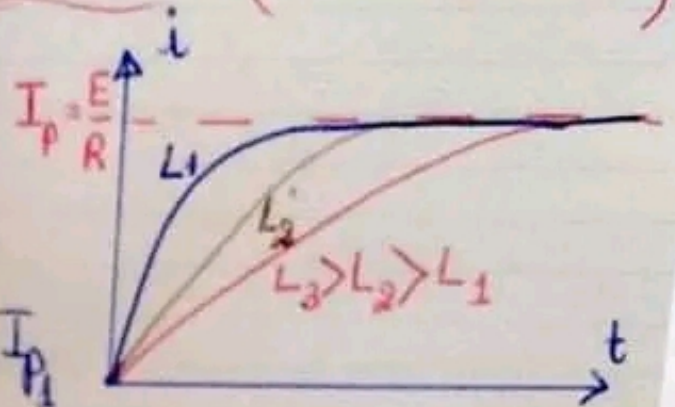 i
I_p = E/R
L1
L2
L3 > L2 > L1
I_p1
t